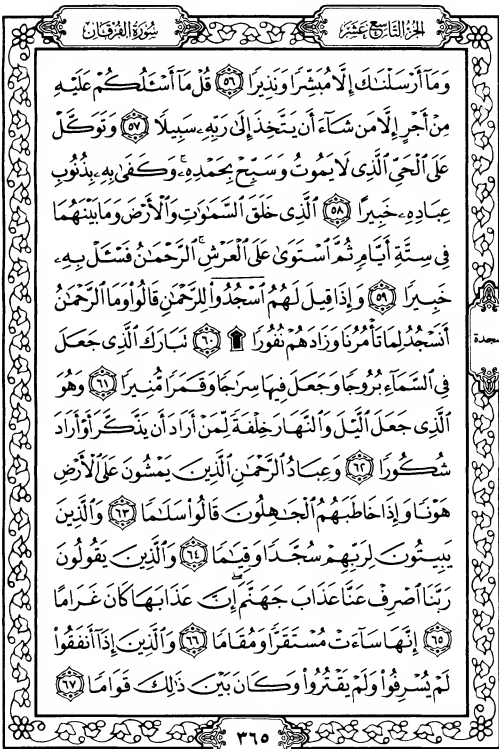 سُورَةُ الفُرْقَان
الجُزْءُ التَّاسِعَ عَشَرَ
وَمَآ أَرْسَلْنَٰكَ إِلَّا مُبَشِّرًا وَنَذِيرًا ٥٦ قُلْ مَآ أَسْـَٔلُكُمْ عَلَيْهِ
مِنْ أَجْرٍ إِلَّا مَن شَآءَ أَن يَتَّخِذَ إِلَىٰ رَبِّهِۦ سَبِيلًا ٥٧ وَتَوَكَّلْ
عَلَى ٱلْحَىِّ ٱلَّذِى لَا يَمُوتُ وَسَبِّحْ بِحَمْدِهِۦ ۚ وَكَفَىٰ بِهِۦ بِذُنُوبِ
عِبَادِهِۦ خَبِيرًا ٥٨ ٱلَّذِى خَلَقَ ٱلسَّمَٰوَٰتِ وَٱلْأَرْضَ وَمَا بَيْنَهُمَا
فِى سِتَّةِ أَيَّامٍ ثُمَّ ٱسْتَوَىٰ عَلَى ٱلْعَرْشِ ۚ ٱلرَّحْمَٰنُ فَسْـَٔلْ بِهِۦ
خَبِيرًا ٥٩ وَإِذَا قِيلَ لَهُمُ ٱسْجُدُوا۟ لِلرَّحْمَٰنِ قَالُوا۟ وَمَا ٱلرَّحْمَٰنُ
أَنَسْجُدُ لِمَا تَأْمُرُنَا وَزَادَهُمْ نُفُورًا ۩ ٦٠ تَبَارَكَ ٱلَّذِى جَعَلَ
سجدة
فِى ٱلسَّمَآءِ بُرُوجًا وَجَعَلَ فِيهَا سِرَٰجًا وَقَمَرًا مُّنِيرًا ٦١ وَهُوَ
ٱلَّذِى جَعَلَ ٱلَّيْلَ وَٱلنَّهَارَ خِلْفَةً لِّمَنْ أَرَادَ أَن يَذَّكَّرَ أَوْ أَرَادَ
شُكُورًا ٦٢ وَعِبَادُ ٱلرَّحْمَٰنِ ٱلَّذِينَ يَمْشُونَ عَلَى ٱلْأَرْضِ
هَوْنًا وَإِذَا خَاطَبَهُمُ ٱلْجَٰهِلُونَ قَالُوا۟ سَلَٰمًا ٦٣ وَٱلَّذِينَ
يَبِيتُونَ لِرَبِّهِمْ سُجَّدًا وَقِيَٰمًا ٦٤ وَٱلَّذِينَ يَقُولُونَ
رَبَّنَا ٱصْرِفْ عَنَّا عَذَابَ جَهَنَّمَ ۖ إِنَّ عَذَابَهَا كَانَ غَرَامًا
٦٥ إِنَّهَا سَآءَتْ مُسْتَقَرًّا وَمُقَامًا ٦٦ وَٱلَّذِينَ إِذَآ أَنفَقُوا۟
لَمْ يُسْرِفُوا۟ وَلَمْ يَقْتُرُوا۟ وَكَانَ بَيْنَ ذَٰلِكَ قَوَامًا ٦٧
٣٦٥